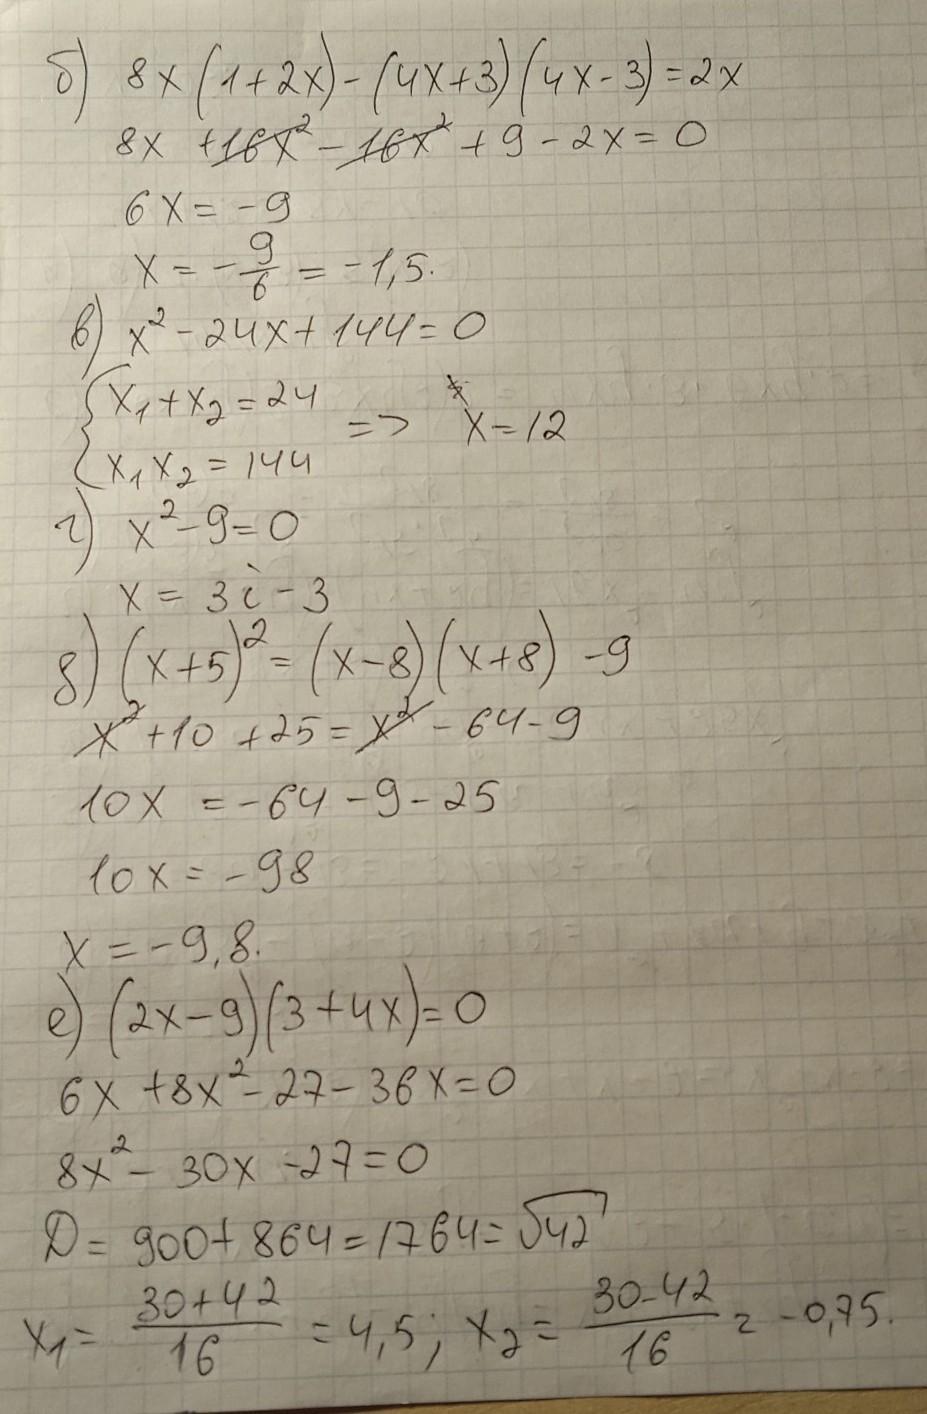 б) 8x(1+2x)-(4x+3)(4x-3)=2x
8x +16x² - 16x² + 9 - 2x = 0
6x = -9
x = -9/6 = -1,5.
в) x² - 24x + 144 = 0
{x₁+x₂=24
=> x=12
{x₁x₂=144
г) x² - 9 = 0
x = 3 и -3
д) (x+5)² = (x-8)(x+8) -9
x² +10 +25 = x² - 64 - 9
10x = -64 - 9 - 25
10x = -98
x = -9,8.
е) (2x-9)(3+4x)=0
6x +8x² - 27 - 36x = 0
8x² - 30x - 27 = 0
D = 900 + 864 = 1764 = √42
x₁ = (30+42)/16 = 4,5; x₂ = (30-42)/16 = -0,75.